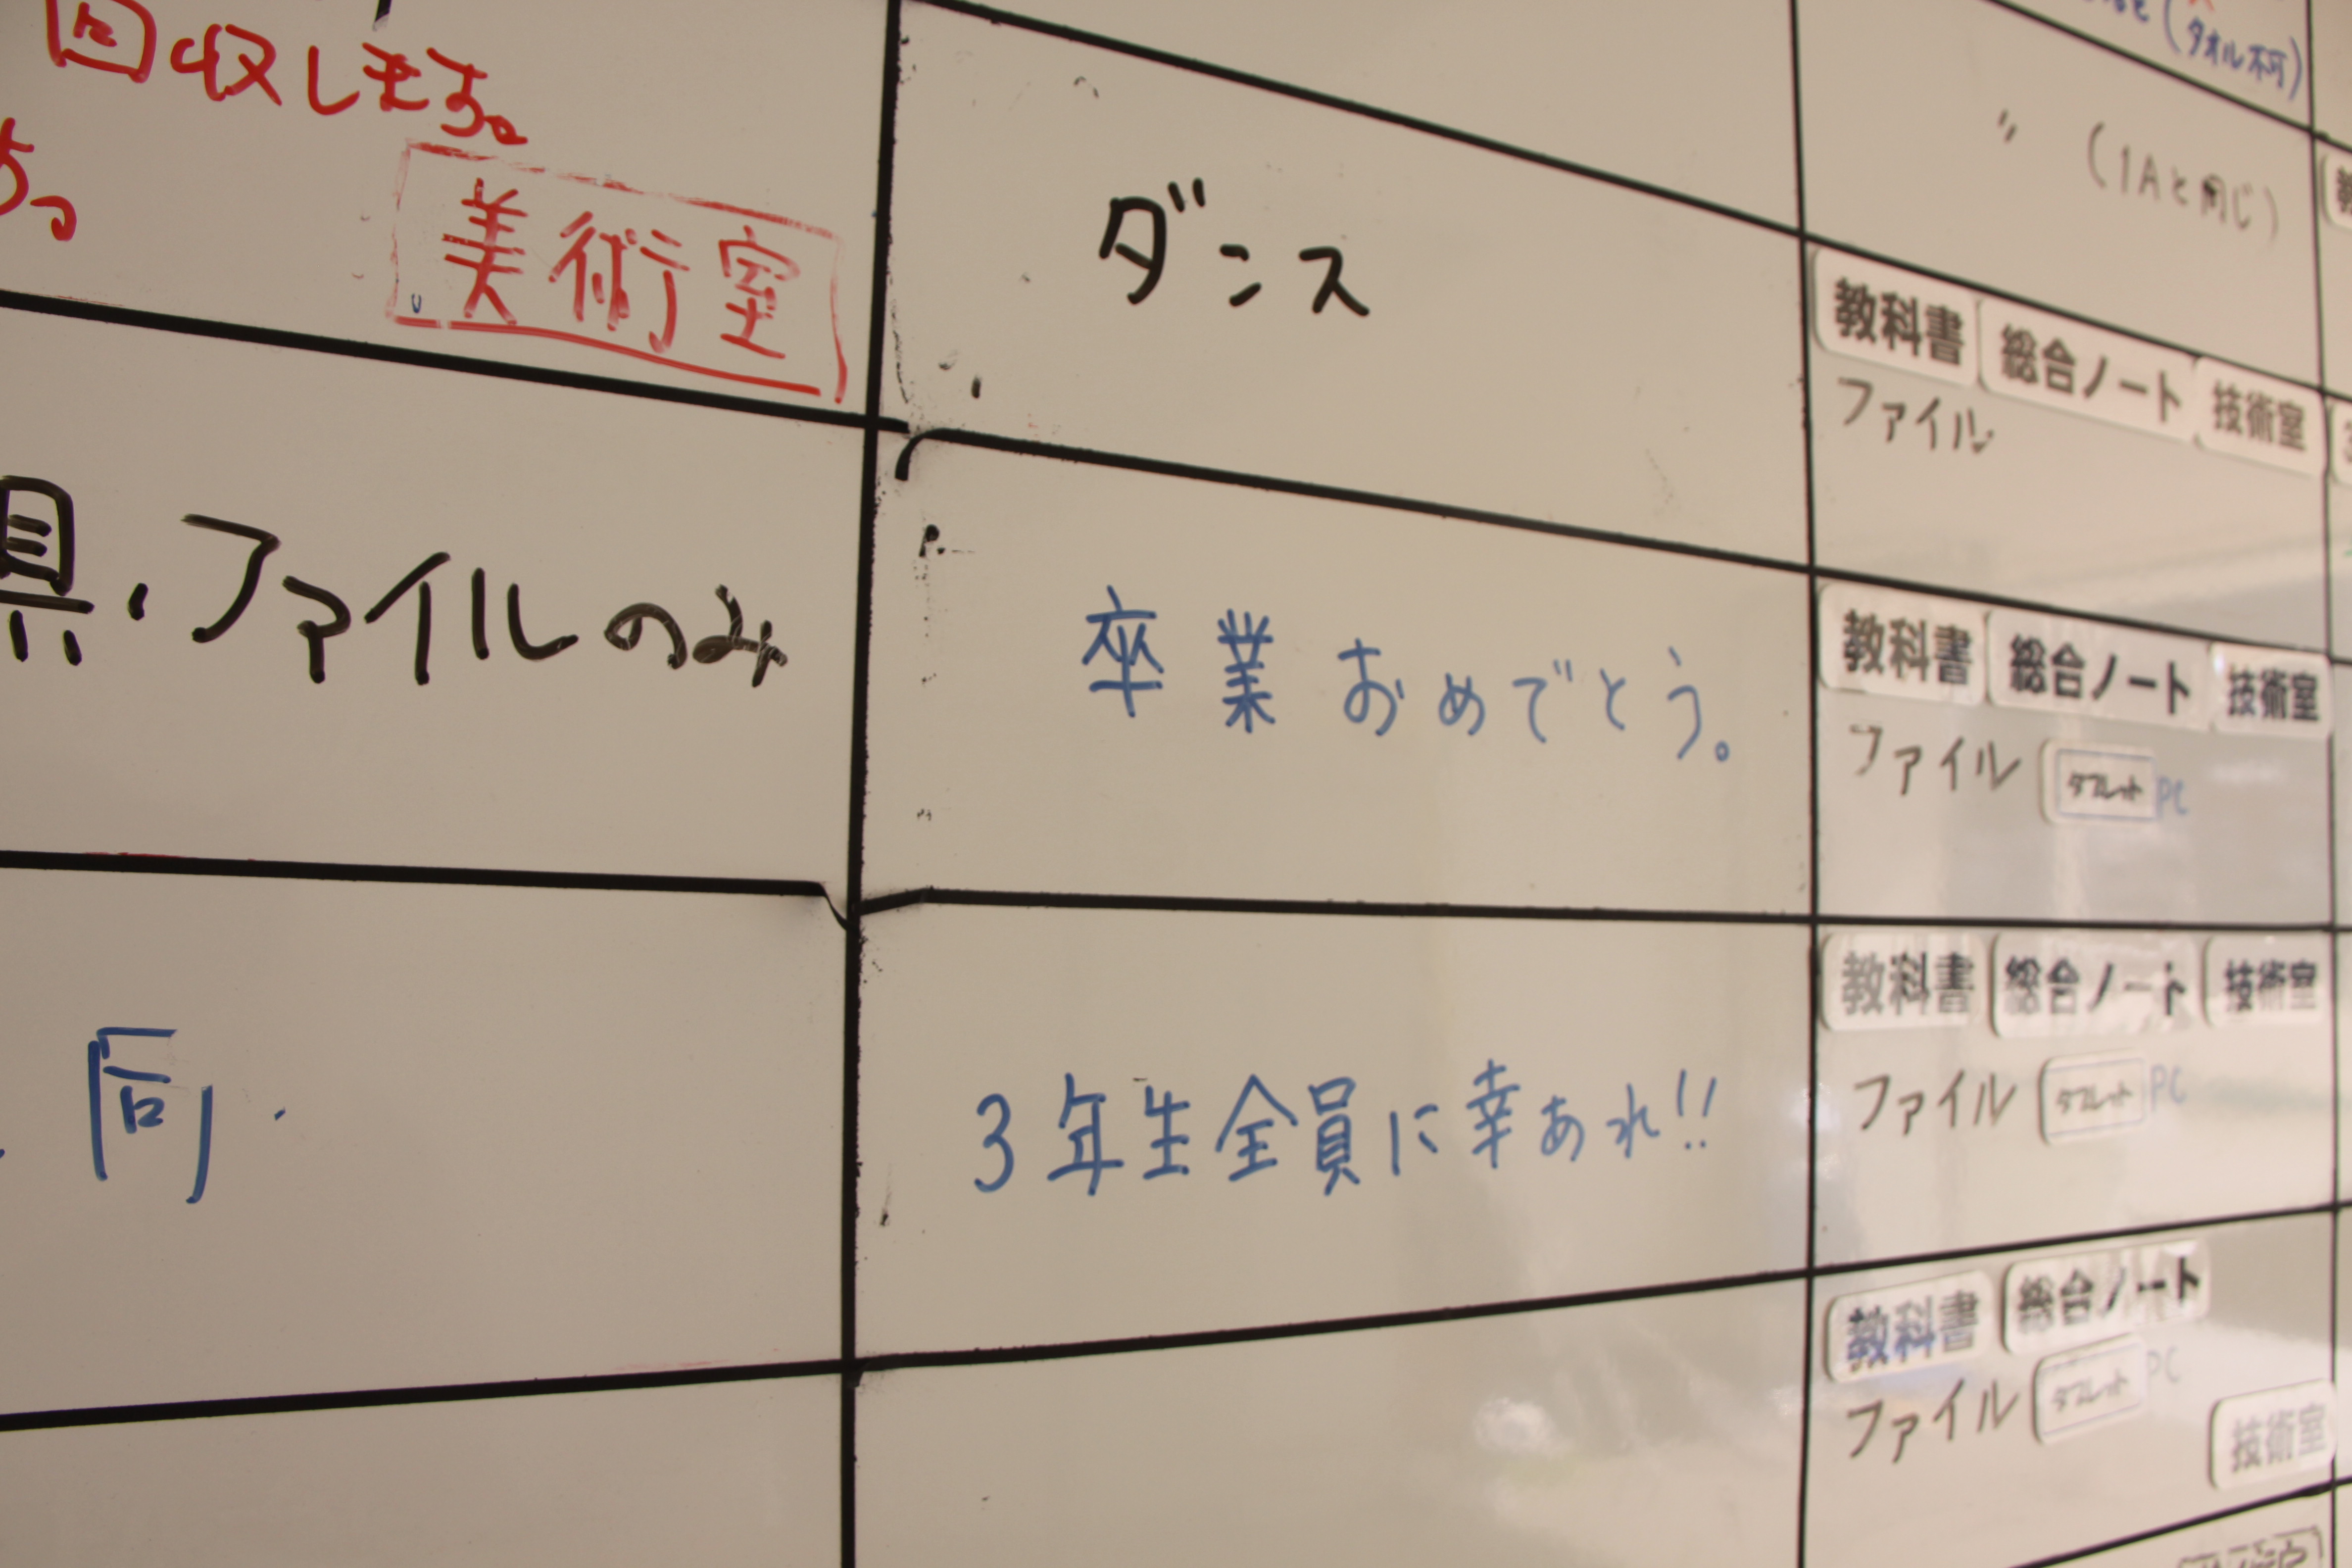 回収します。
す。
美術室
具・ファイルのみ
同
ダンス
卒業おめでとう。
3年生全員に幸あれ!!
(タオル不可)
〃 (1Aと同じ)
教科書 総合ノート 技術室
ファイル
教科書 総合ノート 技術室
ファイル タブレット PC
教科書 総合ノート 技術室
ファイル タブレット PC
教科書 総合ノート
ファイル タブレット PC
技術室